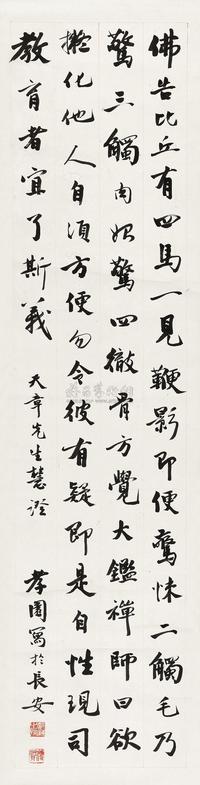 佛告比丘有四馬一見鞭影即便驚悚二觸毛乃
驚三觸肉始驚四徹骨方覺大鑑禪師曰欲
擬化他人自須方便勿令彼有疑即是自性現司
教育者宜了斯義
天章先生慧證
孝園寫於長安